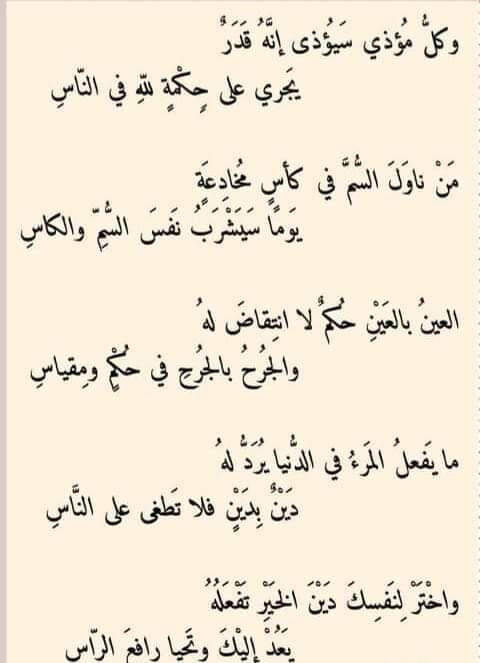 وكلُّ مُؤذي سَيُؤذى إنَّهُ قَدَرٌ
يَجري على حِكْمَةٍ للهِ في النّاسِ
مَنْ ناوَلَ السُّمَّ في كأسٍ مُخادِعَةٍ
يَومًا سَيَشْرَبُ نَفسَ السُّمِّ والكاسِ
العينُ بالعَيْنِ حُكمٌ لا انتِقاضَ لهُ
والجُرحُ بالجُرحِ في حُكْمٍ ومِقياسِ
ما يَفعلُ المَرءُ في الدُّنيا يُرَدُّ لهُ
دَيْنٌ بِدَيْنٍ فلا تَطغى على النَّاسِ
واخْتَرْ لِنَفسِكَ دَيْنَ الخَيْرِ تَفْعَلُهُ
يَعُدْ إليْكَ وتَحيا رافعَ الرّاسِ